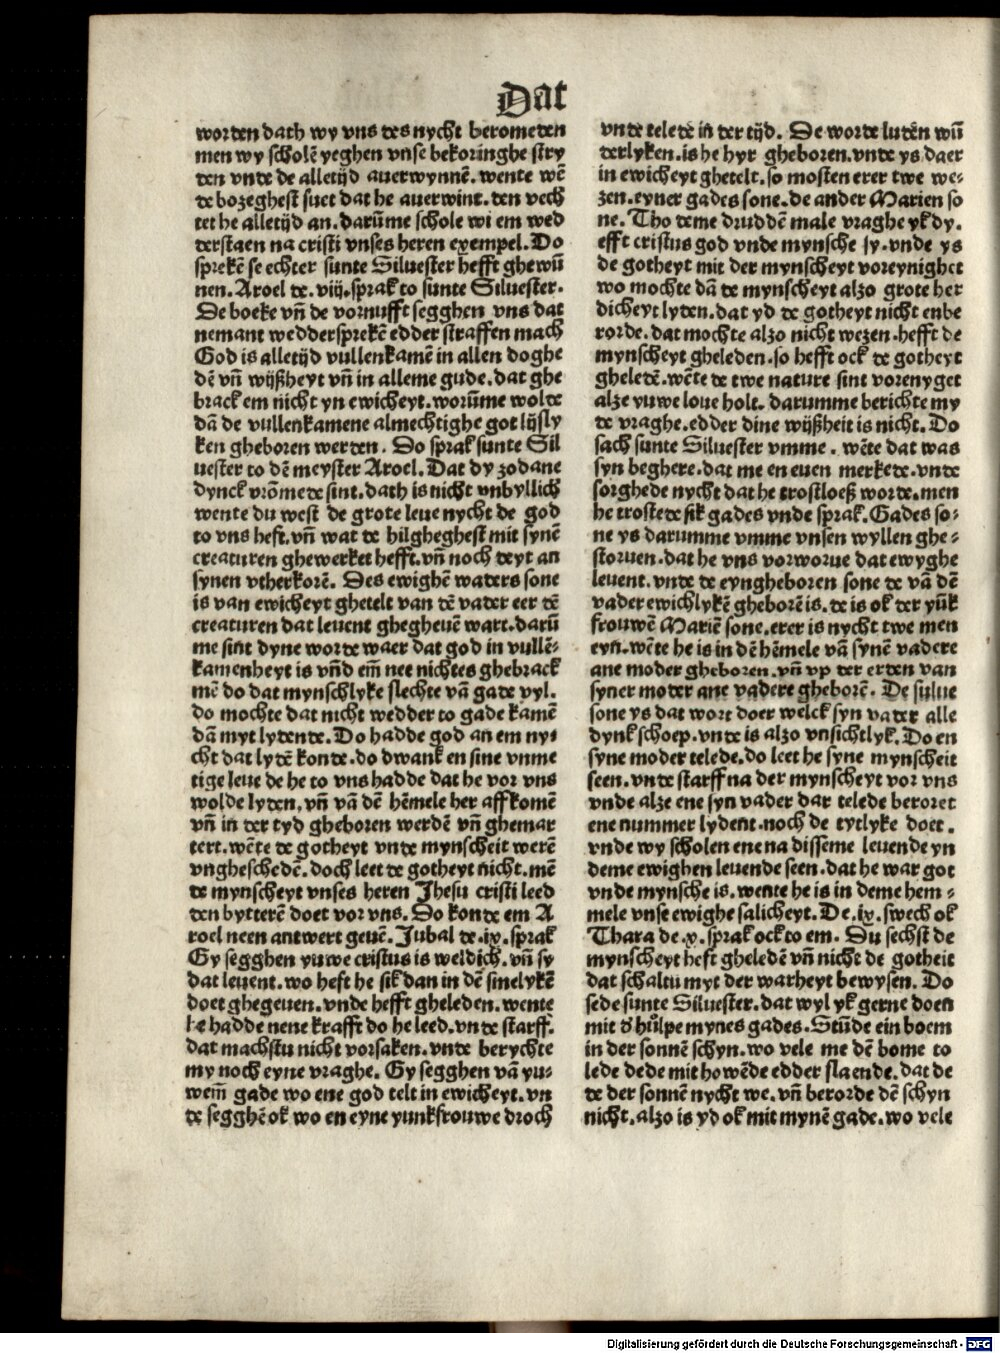 Dat
worden dath wy vns des nycht beromeden
men wy scholē yeghen vnse bekoringhe stry
den vnde de alletijd auerwynnē. wente wē
de bozeghest suet dat he auerwint. den vech
tet he alletijd an. darūme schole wi em wed
derstaen na cristi vnses heren exempel. Do
sprekē se echter sunte Siluester hefft ghewū
nen. Aroel de. viij. sprak to sunte Siluester.
De boeke vn̄ de vornufft segghen vns dat
nemant weddersprekē edder straffen mach
God is alletijd vullenkamē in allen doghe
dē vn̄ wijßheyt vn̄ in alleme gude. dat ghe
brack em nicht yn ewicheyt. worūme wolde
dā de vullenkamene almechtighe got lijsly
ken gheboren werden. Do sprak sunte Sil
uester to dē meyster Aroel. Dat dy zodane
dynck vrōmede sint. dath is nicht vnbyllich
wente du west de grote leue nycht de god
to vns heft. vn̄ wat de hilgheghest mit synē
creaturen ghewerket hefft. vn̄ noch deyt an
synen vtherkorē. Des ewighē waders sone
is van ewicheyt ghetelt van dē vader eer dē
creaturen dat leuent ghegheuē wart. darū
me sint dyne worde waer dat god in vullē-
kamenheyt is vn̄d em̄ nee nichtes ghebrack
mē do dat mynschlyke slechte vā gade vyl.
do mochte dat nicht wedder to gade kamē
dā myt lydende. Do hadde god an em ny-
cht dat lydē konde. do dwank en sine vnme
tige leue de he to vns hadde dat he vor vns
wolde lyden, vn̄ vā dē hēmele her affkomē
vn̄ in der tyd gheboren werdē vn̄ ghemar
tert. wēte de gotheyt vnde mynscheit werē
vngheschedē. doch leet de gotheyt nicht. mē
de mynscheyt vnses heren Jhesu cristi leed
den bytterē doet vor vns. Do konde em A
roel neen antwert geuē. Jubal de. ix. sprak
Gy segghen yuwe cristus is weldich. vn̄ sy
dat leuent. wo heft he sik dan in dē sinelykē
doet ghegeuen. vnde hefft gheleden. wente
he hadde nene krafft do he leed. vnde starff.
dat machstu nicht vorsaken. vnde berychte
my noch eyne vraghe. Gy segghen vā yu-
wem̄ gade wo ene god telt in ewicheyt. vn
de segghē ok wo en eyne yunkfrouwe droch
vnde telede in der tijd. De worde ludēn wū
derlyken. is he hyr gheboren. vnde ys daer
in ewicheyt ghetelt. so mosten erer twe we-
zen. eyner gades sone. de ander Marien so
ne. Tho deme druddē male vraghe yk dy.
efft cristus god vnde mynsche sy. vnde ys
de gotheyt mit der mynscheyt voreynighet
wo mochte dā de mynscheyt alzo grote her
dicheyt lyden. dat yd de gotheyt nicht enbe
rorde. dat mochte alzo nicht wezen. hefft de
mynscheyt gheleden. so hefft ock de gotheyt
gheledē. wēte de twe nature sint vorenyget
alze yuwe loue holt. darumme berichte my
de vraghe. edder dine wijßheit is nicht. Do
sach sunte Siluester vmme. wēte dat was
syn beghere. dat me en euen merkede. vnde
sorghede nycht dat he trostloeß worde. men
he trostede sik gades vnde sprak. Gades so-
ne ys darumme vmme vnsen wyllen ghe-
storuen. dat he vns vorworue dat ewyghe
leuent. vnde de eyngheboren sone de vā dē
vader ewichlykē gheborē is. de is ok der yūk
frouwē Mariē sone. erer is nycht twe men
eyn. wēte he is in dē hēmele vā synē vadere
ane moder gheboren. vn̄ vp der erden van
syner moder ane vadere gheborē. De sulue
sone ys dat wort doer welck syn vader alle
dynk schoep. vnde is alzo vnsichtlyk. Do en
syne moder telede. do leet he syne mynscheit
seen. vnde starff na der mynscheyt vor vns
vnde alze ene syn vader dar telede beroret
ene nummer lydent. noch de tytlyke doet.
vnde wy scholen ene na disseme leuende yn
deme ewighen leuende seen. dat he war got
vnde mynsche is. wente he is in deme hem-
mele vnse ewighe salicheyt. De. ix. swech ok
Thara de. x. sprak ock to em. Du sechst de
mynscheyt heft gheledē vn̄ nicht de gotheit
dat schaltu myt der warheyt bewysen. Do
sede sunte Siluester. dat wyl yk gerne doen
mit d' hůlpe mynes gades. Stūde ein boem
in der sonnē schyn. wo vele me dē bome to
lede dede mit howēde edder slaende. dat de
de der sonnē nycht we. vn̄ berorde dē schyn
nicht. alzo is yd ok mit mynē gade. wo vele
Digitalisierung gefördert durch die Deutsche Forschungsgemeinschaft - DFG